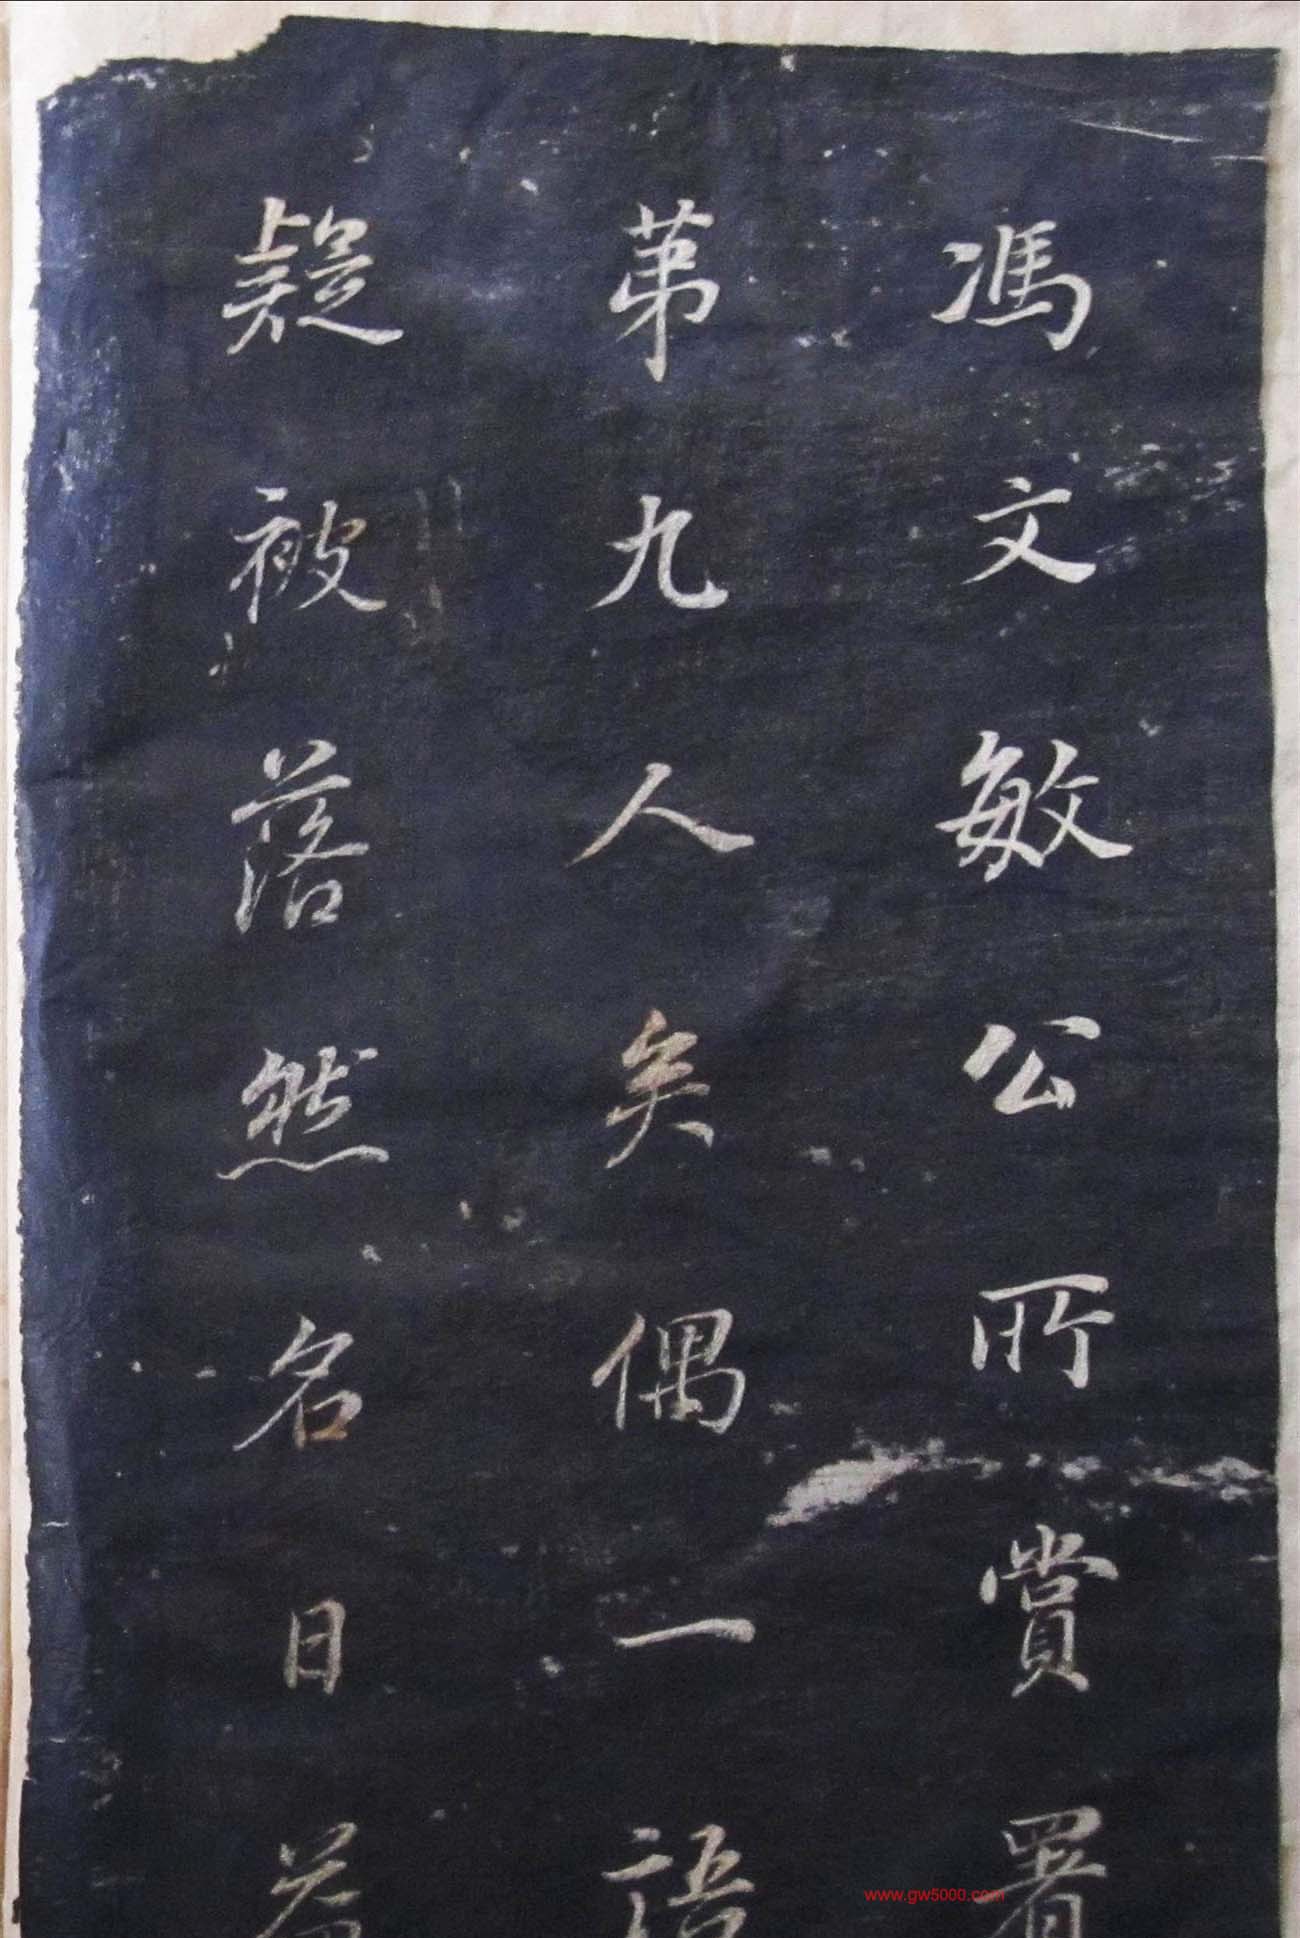 馮文敏公所賞署
第九人矣偶一語
疑被落然名日益
www.gw5000.com